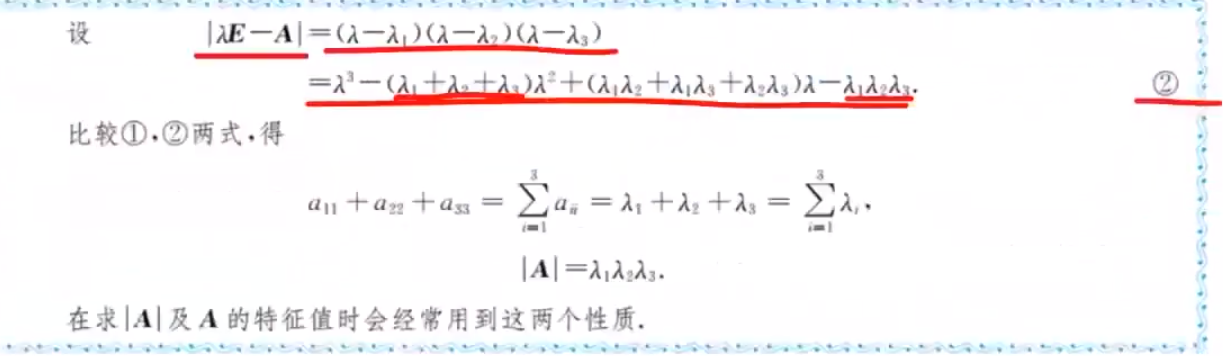 设 |λE-A|=(λ-λ₁)(λ-λ₂)(λ-λ₃)
=λ³-(λ₁+λ₂+λ₃)λ²+(λ₁λ₂+λ₁λ₃+λ₂λ₃)λ-λ₁λ₂λ₃. ②
比较①,②两式,得
a₁₁+a₂₂+a₃₃=∑_{i=1}^{3}a_{ii}=λ₁+λ₂+λ₃=∑_{i=1}^{3}λ_i,
|A|=λ₁λ₂λ₃.
在求|A|及A的特征值时会经常用到这两个性质.